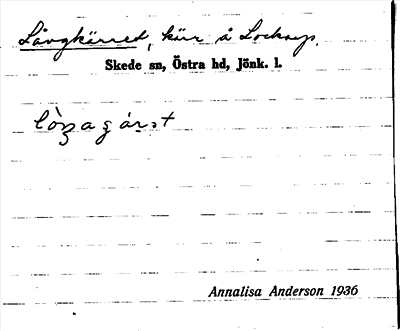 Långkärret, kärr å Lockarp.
Skede sn, Östra hd, Jönk. l.
Annalisa Anderson 1936